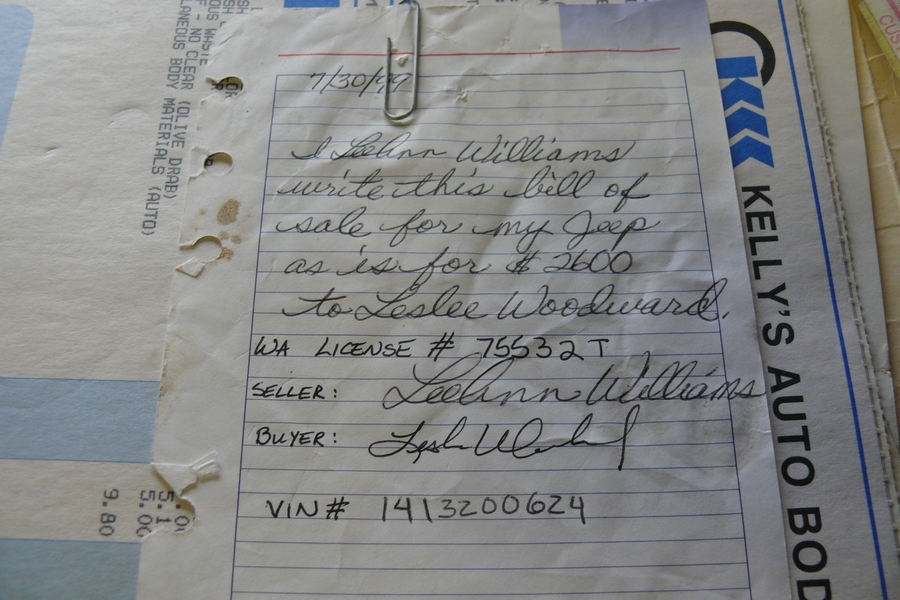 7/30/99
I LeeAnn Williams
write this bill of
sale for my Jeep
as is for $ 2600
to Leslee Woodward.
WA LICENSE # 75532T
SELLER: LeeAnn Williams
BUYER:
VIN# 1413200624
KELLY'S AUTO BOD
- NO CLEAR (OLIVE DRAB)
LANEOUS BODY MATERIALS (AUTO)
5.1
5.00
9.80